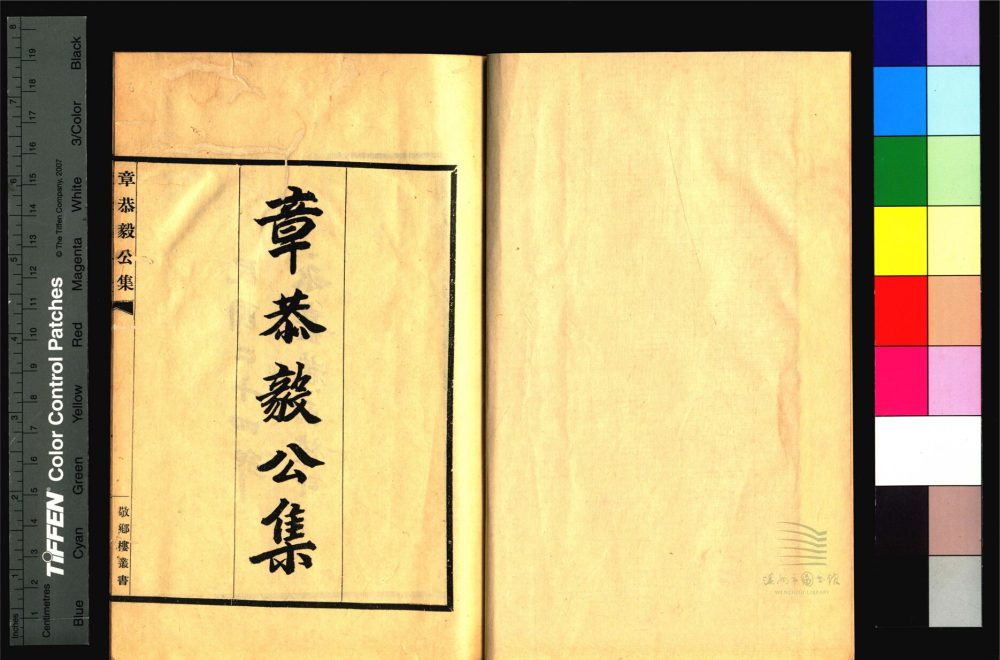 章恭毅公集
章恭毅公集
敬鄉樓叢書
温州市图书馆
WENZHOU LIBRARY
TIFFEN® Color Control Patches
© The Tiffen Company, 2007
Inches
1 2 3 4 5 6 7 8
Centimetres
1 2 3 4 5 6 7 8 9 10 11 12 13 14 15 16 17 18 19
Blue Cyan Green Yellow Red Magenta White 3/Color Black